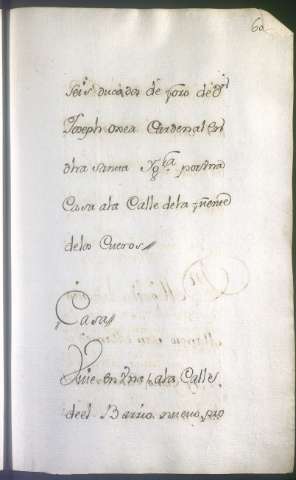 60
seis ducados de foro de Dn
Joseph onea Cardenal en
dha santa Ygla por una
Casa a la Calle de la fuente
de los Cueros
Casa
Vive en una a la Calle
de el Barrio nuevo, pro